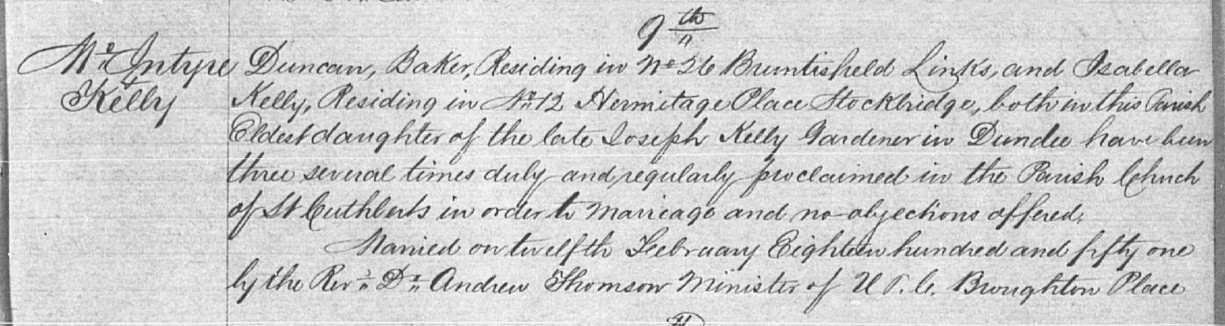 9th
McIntyre Duncan, Baker, Residing in No 26 Bruntisfield Links, and Isabella
&
Kelly Kelly, Residing in No 12 Hermitage Place Stockbridge, both in this Parish
Eldest daughter of the late Joseph Kelly Gardener in Dundee have been
three several times duly and regularly proclaimed in the Parish Chuch
of St Cuthberts in order to Marriage and no objections offered;
Married on twelfth February Eighteen hundred and fifty one
by the Revd Dr Andrew Thomson Minister of U.P.C. Broughton Place